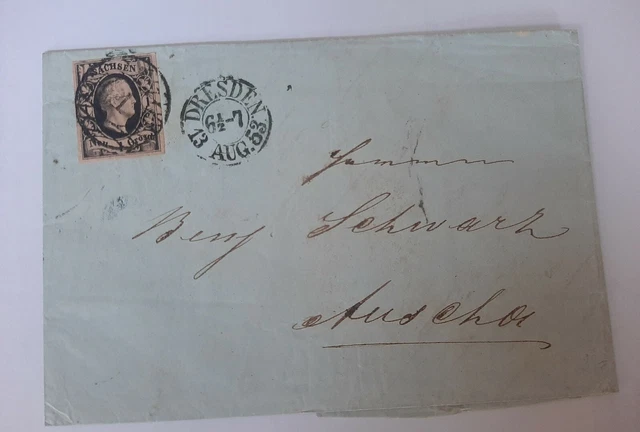 SACHSEN
Neu 1 Grosch
DRESDEN
6½-7
13 AUG. 53
Herrn
Benj Schwarz
Auscha